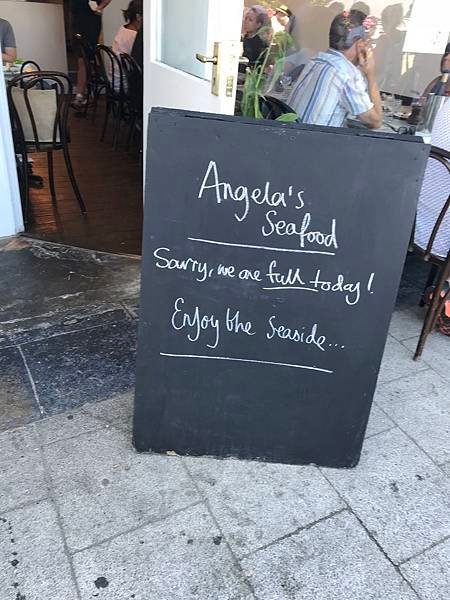 Angela's
Seafood
Sorry, we are full today!
Enjoy the Seaside...